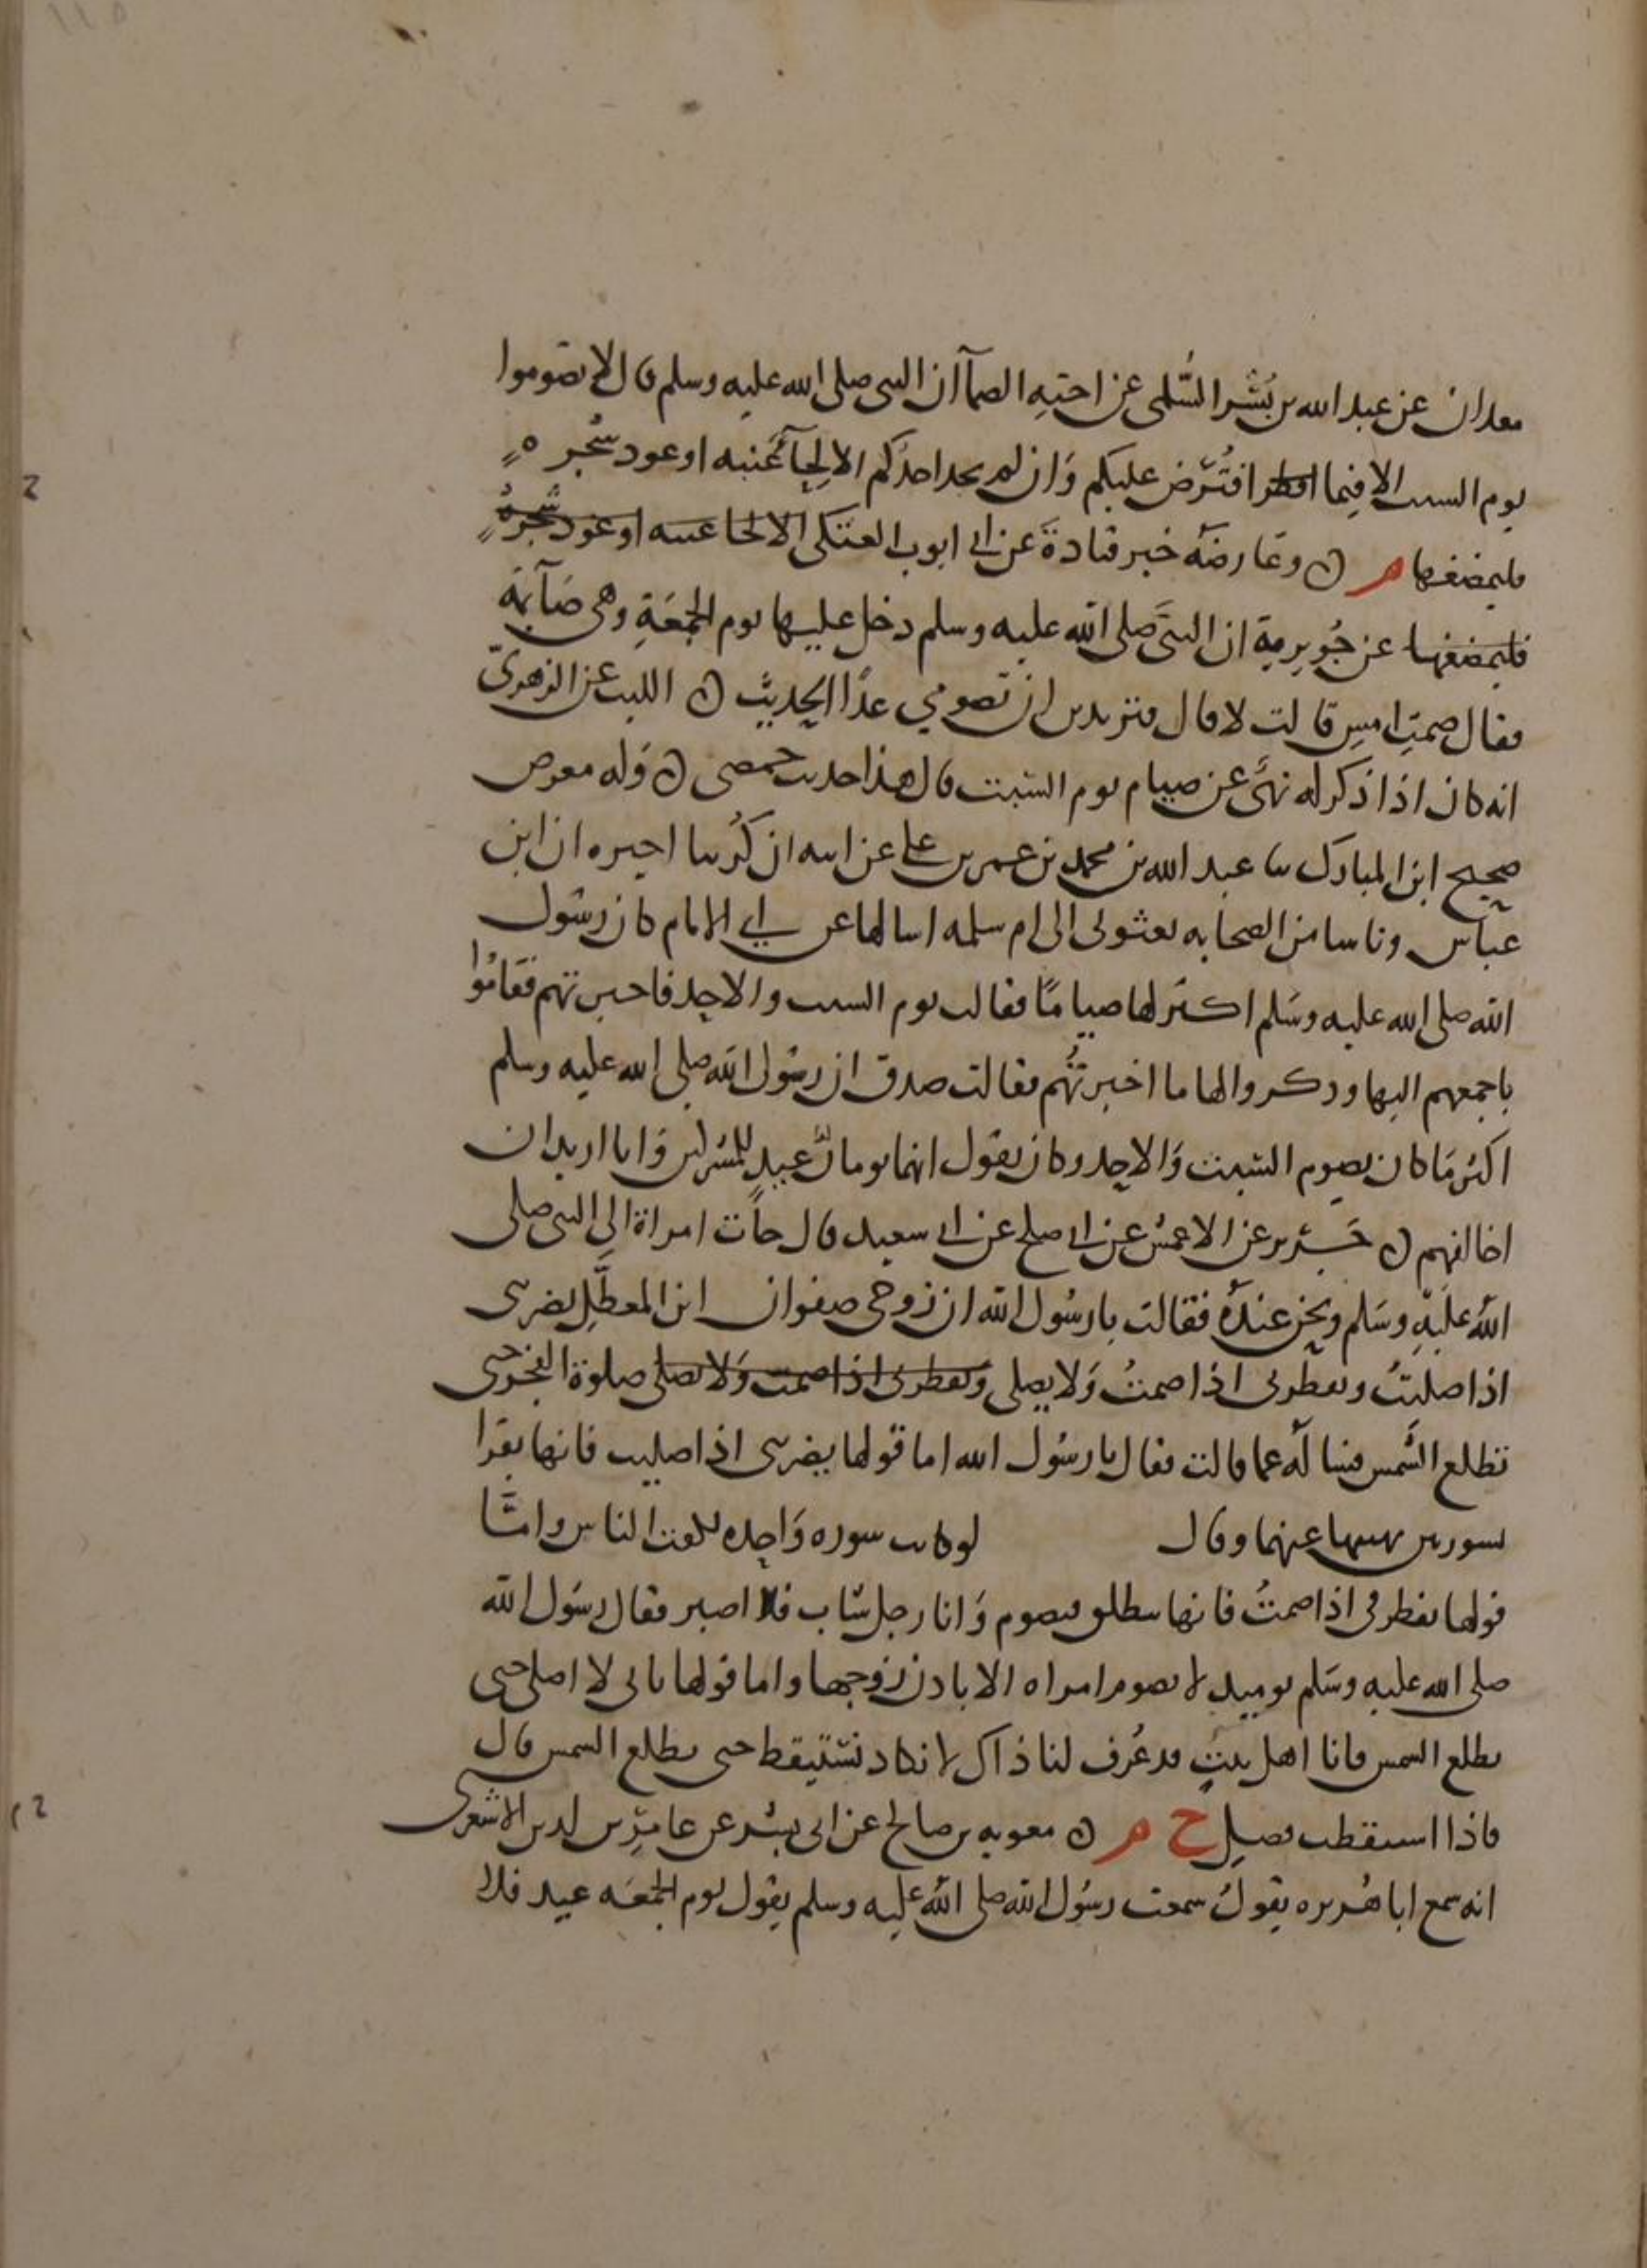 معدان عن عبد الله بن بُسْر السُّلمى عن اخته الصمآ ان النبى صلى الله عليه وسلم قال لا تصوموا
يوم السبت الا فيما افطر افتُرض عليكم وَان لم يجد احدُكم الا لِحآ عُنبه او عود شجره
فليمضغها م ن وعارضَه خبر قتادةَ عن ابى ايوب العتكى الا لحا عنبه او عود شجرهٍ
فليمضغها عن جُويرية ان النبىَّ صلى الله عليه وسلم دخل عليها يوم الجمعَةِ وهى صَآئمة
فقال صمتِ امسِ قالت لا قال فتريدين ان تصومي غدًا الحديث ن الليث عن الزهرىّ
انه كان اذا ذكر له نهىَ عن صيام يوم السبت قال هذا حديث حمصى ن وَله معرض
صحيح ابن المبارك نا عبد الله بن محمد بن عمر بن على عن ابيه ان كُريبا اخبره ان ابن
عباس وناسا من الصحابه بعثوني الى ام سلمه اسالها عن اي الايام كان رسول
الله صلى الله عليه وسَلم اكثر لها صيامًا فقالت يوم السبت والاحد فاخبرتهم فقامُوا
باجمعهم اليها وذكروا لها ما اخبرتُهم فقالت صدق ان رسول الله صلى الله عليه وسلم
اكثر مَا كان يصوم السبت وَالاحد وكان يقول انهما يومان عيد للمشركين وَانا اريد ان
اخالفهم ن جَرير عن الاعمش عن ابى صلح عن ابى سعيد قال جآت امراة الى النبى صلى
اللهُ علَيهِ وسَلم ونحن عندهُ فقالت يا رسُول الله ان زوجى صفوان ابن المعطَّلِ يضربنى
اذا صليتُ ويفطرنى اذا صمتُ وَلا يصلى ويفطرنى اذا صمت وَلا يصلى صلوة الفجر حتى
تطلع الشَمس فسالهُ عما قالت فقال يا رسُول الله اما قولها يضربنى اذا صليت فانها تقرا
بسورتين نهيتها عنهما وقال لو كانت سوره وَاحده لكفت الناس وامَّا
قولها يفطرنى اذا صمتُ فانها تنطلق فتصوم وَانا رجل شاب فلا اصبر فقال رسُول الله
صلى الله عليه وسَلم يوميذ لا تصوم امراه الا باذن زوجها واما قولها بانى لا اصلى حتى
تطلع الشمس فانا اهل بيتٍ قد عُرف لنا ذاك لا نكاد نستيقط حتى تطلع الشمس قال
فاذا استيقظت فصلِ خ م ن معويه بن صالح عن ابى بشر عن عامر بن لدين الاشعرى
انه سمع ابا هُريره يقولُ سمعت رسُول الله صلى اللهُ عليه وسلم يقول يوم الجمعَه عيد فلا